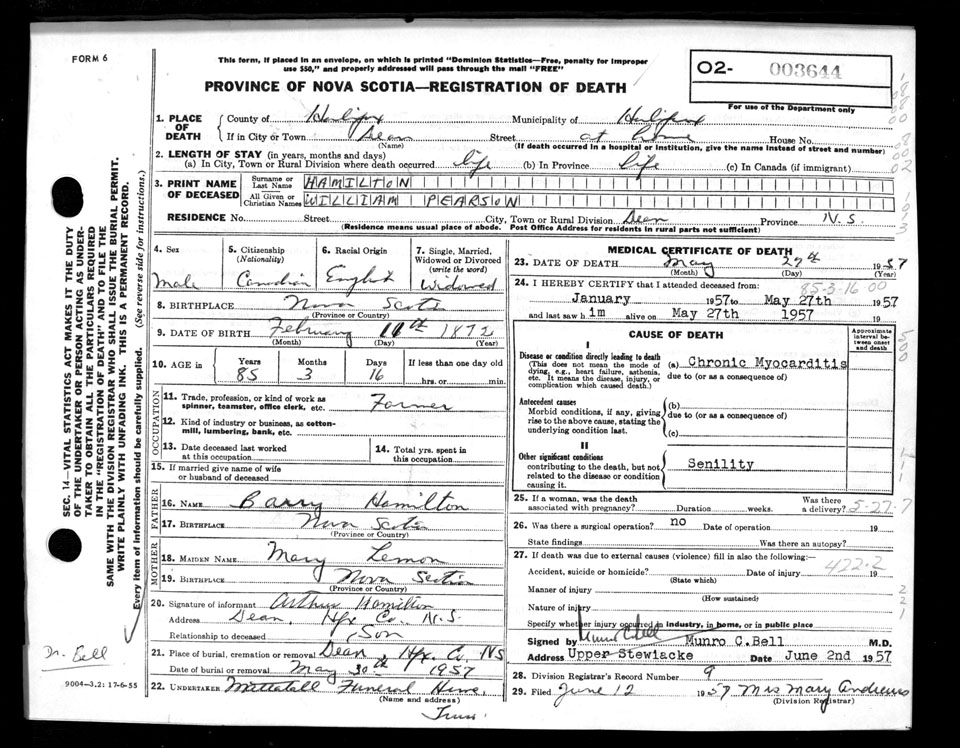 FORM 6
This form, if placed in an envelope, on which is printed "Dominion Statistics—Free, penalty for improper
use $50," and properly addressed will pass through the mail "FREE"
02- 003644
For use of the Department only
PROVINCE OF NOVA SCOTIA—REGISTRATION OF DEATH
1. PLACE OF DEATH
County of Halifax Municipality of Halifax
If in City or Town Dean Street at home House No.
(Name) (If death occurred in a hospital or institution, give the name instead of street and number)
2. LENGTH OF STAY (in years, months and days)
(a) In City, Town or Rural Division where death occurred life (b) In Province life (c) In Canada (if immigrant)
3. PRINT NAME OF DECEASED
Surname or Last Name HAMILTON
All Given or Christian Names WILLIAM PEARSON
RESIDENCE No. Street City, Town or Rural Division Dean Province N.S.
(Residence means usual place of abode. Post Office Address for residents in rural parts not sufficient)
4. Sex Male
5. Citizenship (Nationality) Canadian
6. Racial Origin English
7. Single, Married, Widowed or Divorced (write the word) Widowed
8. BIRTHPLACE Nova Scotia
(Province or Country)
9. DATE OF BIRTH February 11th 1872
(Month) (Day) (Year)
10. AGE in Years 85 Months 3 Days 16 If less than one day old hrs. or min.
OCCUPATION
11. Trade, profession, or kind of work as spinner, teamster, office clerk, etc. Farmer
12. Kind of industry or business, as cotton-mill, lumbering, bank, etc.
13. Date deceased last worked at this occupation
14. Total yrs. spent in this occupation
15. If married give name of wife or husband of deceased
FATHER
16. NAME Barry Hamilton
17. BIRTHPLACE Nova Scotia
(Province or Country)
MOTHER
18. MAIDEN NAME Mary Lemon
19. BIRTHPLACE Nova Scotia
(Province or Country)
20. Signature of informant Arthur Hamilton
Address Dean, Hfx Co. N.S.
Relationship to deceased Son
21. Place of burial, cremation or removal Dean, Hfx. Co. NS
Date of burial or removal May 30th 1957
22. UNDERTAKER Mattatall Funeral Home,
(Name and address)
MEDICAL CERTIFICATE OF DEATH
23. DATE OF DEATH May 27th 1957
(Month) (Day) (Year)
24. I HEREBY CERTIFY that I attended deceased from: 85-3-16 00
January 1957 to May 27th 1957
and last saw him alive on May 27th 1957 19
CAUSE OF DEATH
Approximate interval between onset and death
I
Disease or condition directly leading to death
(This does not mean the mode of dying, e.g., heart failure, asthenia, etc. It means the disease, injury, or complication which caused death.)
(a) Chronic Myocarditis
due to (or as a consequence of)
Antecedent causes
Morbid conditions, if any, giving rise to the above cause, stating the underlying condition last.
(b)
due to (or as a consequence of)
(c)
II
Other significant conditions
contributing to the death, but not related to the disease or condition causing it.
Senility
25. If a woman, was the death associated with pregnancy? Duration weeks. Was there a delivery? 5-27-7
26. Was there a surgical operation? no Date of operation 19
State findings Was there an autopsy?
27. If death was due to external causes (violence) fill in also the following:—
422.2
Accident, suicide or homicide? Date of injury 19
(State which)
Manner of injury
(How sustained)
Nature of injury
Specify whether injury occurred in industry, in home, or in public place
Signed by Munro C Bell Munro C.Bell M.D.
Address Upper Stewiacke Date June 2nd 1957
28. Division Registrar's Record Number 9
29. Filed June 12 1957 Mrs Mary Andrews
(Division Registrar)
SEC. 14—VITAL STATISTICS ACT MAKES IT THE DUTY
OF THE UNDERTAKER OR PERSON ACTING AS UNDER-
TAKER TO OBTAIN ALL THE PARTICULARS REQUIRED
IN THE "REGISTRATION OF DEATH" AND TO FILE THE
SAME WITH THE DIVISION REGISTRAR WHO SHALL ISSUE THE BURIAL PERMIT.
WRITE PLAINLY WITH UNFADING INK. THIS IS A PERMANENT RECORD.
Every item of information should be carefully supplied. (See reverse side for instructions.)
Dr. Bell
9004-3.2: 17-6-55